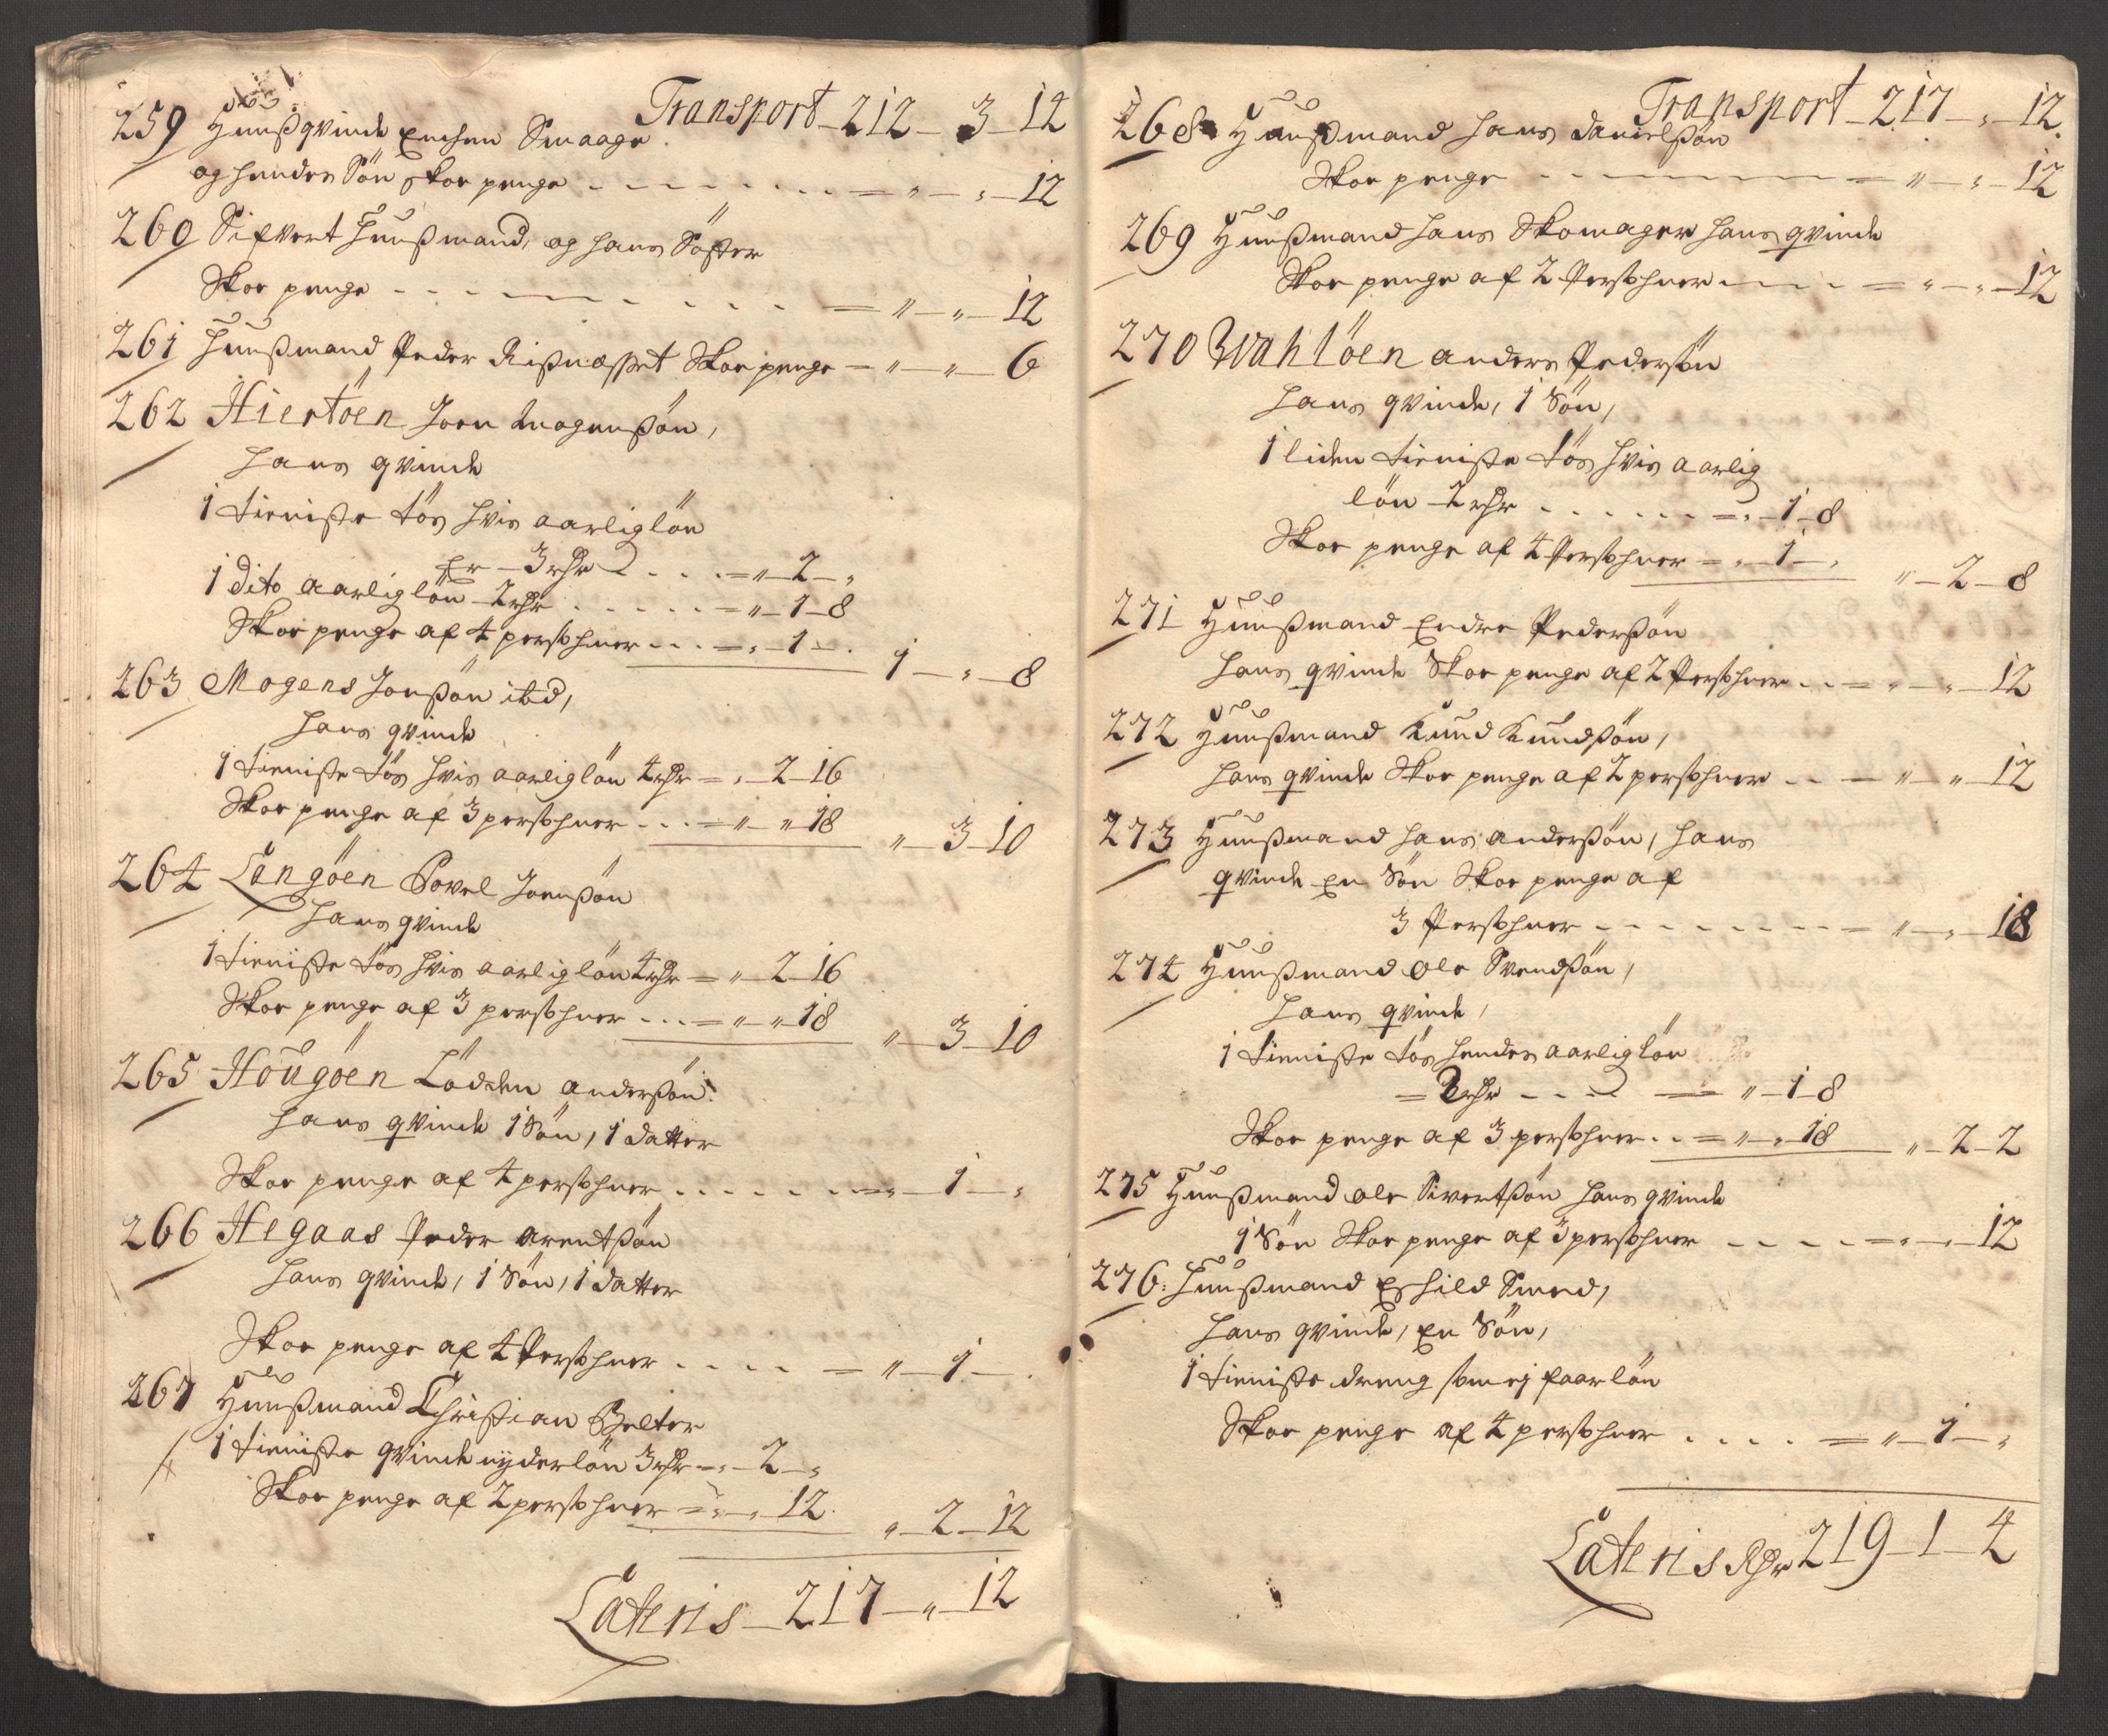 Transport - 212 - 3 - 12
259 Huußqvinde Smaage
og hendes Sön skoe penge - - - = " - " - 12
260 Sifvert Huußmand, og hans Söster
Skoe penge - - - = " - " - 12
261 Huußmand Peder Rißnæsset Skoe penge - " - " - 6
262 Hiertöen Joen Mogenßön,
hans qvinde
1 tieniste tös hvis aarlig lön
er - 3 rdr - - - = " - 2 - "
1 dito aarlig lön 2 rdr - - - = " - 1 - 8
Skoe penge af 4 persohner - - - = " - 1 - "
1 - " - 8
263 Mogens Jonßön ibd,
hans qvinde
1 tieniste tös hvis aarlig lön 4 rdr = " - 2 - 16
Skoe penge af 3 persohner - - - = " - " 18
" - 3 - 10
264 Langöen Povel Joenßön
hans qvinde
1 tieniste tös hvis aarlig lön 4 rdr = " - 2 - 16
Skoe penge af 3 persohner - - - = " - " - 18
" - 3 - 10
265 Hougöen Lodden anderßön
hans qvinde 1 Sön, 1 datter
Skoe penge af 4 persohner - - - = " - 1 - "
266 Hegaas Peder arentßön
hans qvinde, 1 Sön, 1 datter
Skoe penge af 4 Persohner - - - = " - 1 - "
267 Huußmand Christian Belter
1 tieniste qvinde nyder lön 3 rdr = " - 2 - "
Skoe penge af 2 persohner = " - " - 12
" - 2 - 12
Lateris - 217 - " - 12
Transport - 217 - " - 12
268 Huußmand hans danielßön
Skoe penge - - - = " - " - 12
269 Huußmand hans Skomager hans qvinde
Skoe penge af 2 Persohner - - - = " - " - 12
270 Wahlöen anders Pederßön
hans qvinde, 1 Sön,
1 liden tieniste tös hvis aarlig
lön 2 rdr - - - = " - 1 - 8
Skoe penge af 4 Persohner = " - 1 - "
" - 2 - 8
271 Huußmand Endre Pederßön
hans qvinde Skoe penge af 2 Persohner - - = " - " - 12
272 Huußmand Knud Knudßön,
hans qvinde Skoe penge af 2 persohner - - = " - " - 12
273 Huußmand hans anderßön, hans
qvinde en Sön Skoe penge af
3 Persohner - - - = " - " - 18
274 Huußmand Ole Svendßön,
hans qvinde,
1 tieniste tös hendes aarlig lön
= 2 rdr - - - = " - 1 - 8
Skoe penge af 3 persohner - - = " - " - 18
" - 2 - 2
275 Huußmand ole Sivertßön hans qvinde
1 Sön Skoe penge af 3 persohner - - - = " - " - 12
276: Huußmand Eshild Smed,
hans qvinde, en Sön,
1 tieniste dreng som ej faar lön
Skoe penge af 4 persohner - - - = " - 1 - "
Lateris Rdr 219 - 1 - 4